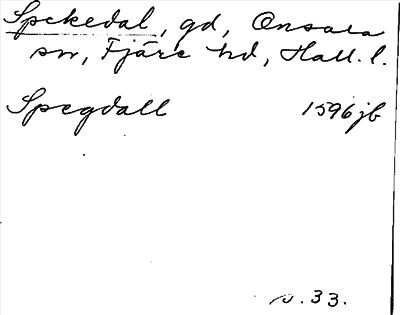 Spekedal, gd, Onsala
sn, Fjäre hd, Hall. l.
Spegdall 1596 jb
s. 33.